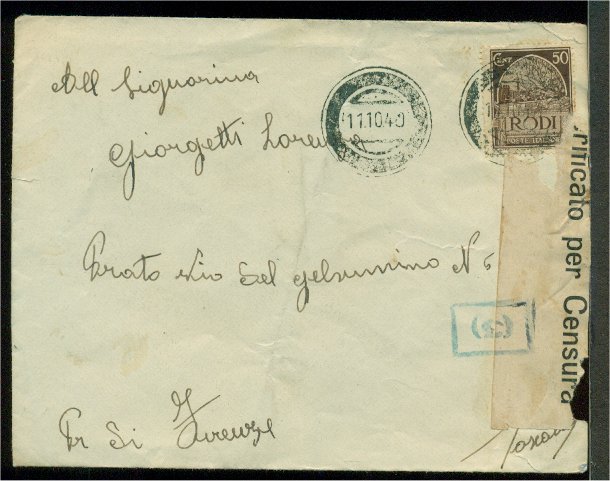 All Signorina
Giorgetti Loren
Prato Via del gelsumino N 6
Pr di Firenze
Toscana
11.10.40
CENT. 50
RODI
POSTE ITALIANE
rificato per Censura